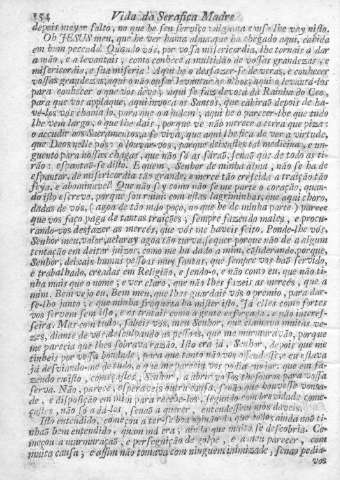 154 Vida da Serafica Madre
depois mayor falto, no que he seu serviço religiosa tenho-lhe sey nisso.
Oh JESUS meu, que he ver huma alma, que ha chegado aqui, cahida
em hum peccado! Quando vós, por vossa misericordia, lhe tornais a dar
a mão, e a levantais; como conhece a multidão de vossas grandezas, e
misericordia, e sua miseria! Aqui he o desfazer-se de veras, e conhecer
vossas grandezas, aqui o não ousar levantar os olhos, aqui o levantá-los
para conhecer o que vos deve, aqui se faz devota da Rainha do Ceo,
para que vos applaque, aqui invoca os Santos, que cahirao depois de ha-
vê-los vós chamado, para que a ajudem; aqui he o parecer-lhe que tudo
lhe vem largo, o que lhe dais, porque ve não merece a terra que piza:
o accudir aos Sacramentos, a fé viva, que aqui lhe fica de ver a virtude,
que Deos nelle pôz: o louvar-vos, porque deixastes tal medicina, e un-
guento para nossas chagas, que não só as sarão, senão que de todo as ti-
rão: espantão-se disto. E quem, Senhor de minha alma, não se ha de
espantar, de misericordia tão grande, e mercê tão crescida a traição tão
feya, e abominavel! Que não sey como não se me parte o coração, quan-
do isto escrevo, porque sou ruim: com estas lagriminhas, que aqui choro,
dadas de vós, (agoa de tão mao poço, no que he de minha parte) parece
que vos faço paga de tantas traições, sempre fazendo males, e procu-
rando-vos desfazer as mercês, que vós me haveis feito. Ponde-lhe vós,
Senhor meu, valor, aclaray agoa tão turva, sequer porque não dê a algum
tentação em deitar juizos, como me ha dado a mim, considerando, porque,
Senhor, deixais humas pessoas muy santas, que sempre vos hão servido,
e trabalhado, creadas em Religião, e sendo-o, e não como eu, que não ti-
nha mais que o nome; e ver claro, que não lhes fazeis as mercês, que a
mim. Bem vejo eu, Bem meu, que lhes guardais vós o premio, para dar-
se-lho junto; e que minha fraqueza ha mister isto. Já elles como fortes
vos servem sem isso, e os tratais como a gente esforçada, e não interes-
seira. Mas com tudo, sabeis vós, meu Senhor, que clamava muitas ve-
zes, diante de vós desculpando as pessoas, que me murmuravão, porque
me parecia que lhes sobrava razão. Isto era já, Senhor, depois que me
tinheis por vossa bondade, para que tanto não vos offendesse; e eu estava
já desviando-me de tudo, o que me parecia vos podia enojar: que em fa-
zendo eu isto, começastes, Senhor, a abrir vossos thesouros para vossa
serva. Não, parece, esperaveis outra cousa, senão que houvesse vonta-
de, e disposição em mim para recebê-los, segundo com brevidade come-
çastes, não só a dá-los, senão a querer, entendessem mos daveis.
Isto entendido, começou a ter-se boa opinião da que todos ainda não ti-
nhão bem entendido, quam má era; ainda que muito se descobria. Co-
meçou a murmuração, e perseguição de golpe, e a meu parecer, com
muita causa; e assim não tomava com ninguem inimizade, senão pedia-
vos